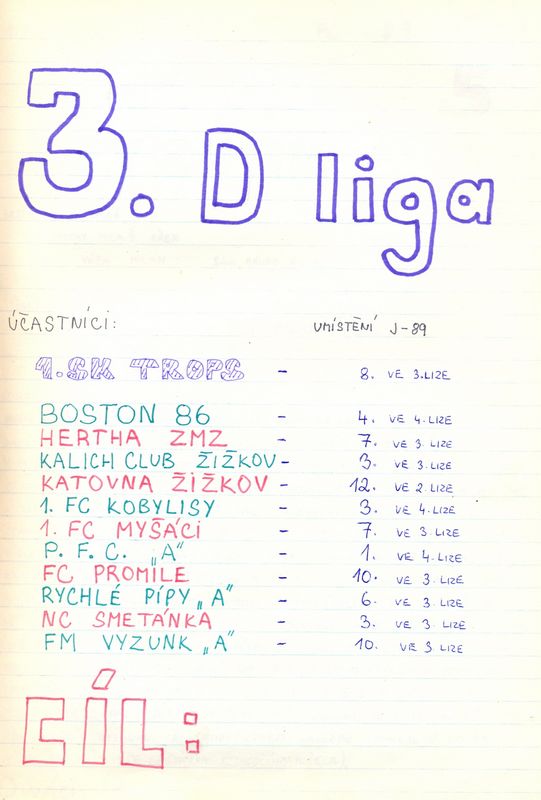 3. D liga
ÚČASTNÍCI: UMÍSTĚNÍ J-89
1.SK TROPS - 8. VE 3.LIZE
BOSTON 86 - 4. VE 4.LIZE
HERTHA ZMZ - 7. VE 3.LIZE
KALICH CLUB ŽIŽKOV - 3. VE 3.LIZE
KATOVNA ŽIŽKOV - 12. VE 2.LIZE
1. FC KOBYLISY - 3. VE 4.LIZE
1. FC MYŠÁCI - 7. VE 3.LIZE
P. F. C. „A" - 1. VE 4.LIZE
FC PROMILE - 10. VE 3.LIZE
RYCHLÉ PÍPY „A" - 6. VE 3.LIZE
NC SMETÁNKA - 3. VE 3.LIZE
FM VYZUNK „A" - 10. VE 3 LIZE
CÍL: